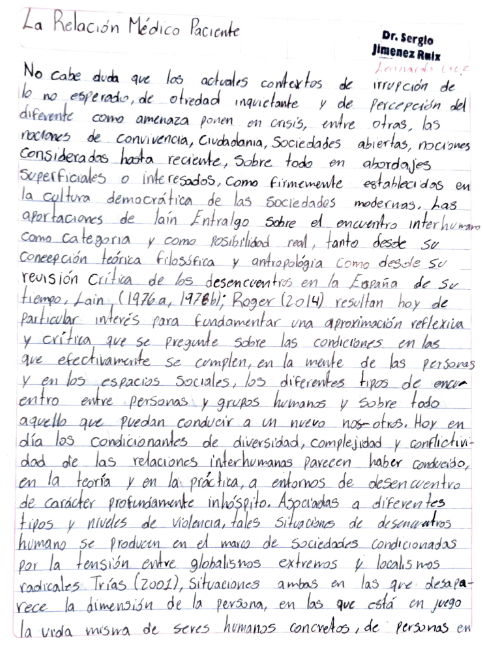 La Relación Médico Paciente
Dr. Sergio
Jimenez Ruiz
No cabe duda que los actuales contextos de irrupción de
lo no esperado, de otredad inquietante y de percepción del
diferente como amenaza ponen en crisis, entre otras, las
nociones de convivencia, Ciudadania, Sociedades abiertas, nociones
Consideradas hasta reciente, Sobre todo en abordajes
Superficiales o interesados, Como firmemente establecidas en
la cultura democrática de las Sociedades modernas. Las
aportaciones de laín Entralgo Sobre el encuentro interhumano
como categoria y como posibilidad real, tanto desde su
Concepción teórica filosófica y antropológia Como desde su
revisión Crítica de los desencuentros en la España de su
tiempo, Lain, (1976a, 1976b); Roger (2014) resultan hoy de
particular interés para fundamentar una aproximación reflexiva
y crítica que se pregunte sobre las condiciones en las
que efectivamente se complen, en la mente de las personas
y en los espacios Sociales, los diferentes tipos de encu-
entro entre personas y grupos humanos y Sobre todo
aquello que puedan conducir a un nuevo nos-otros. Hoy en
día los condicionantes de diversidad, complejidad y conflictivi-
dad de las relaciones interhumanas parecen haber conducido,
en la teoría y en la práctica, a entornos de desencuentro
de carácter profundamente inhóspito. Asociadas a diferentes
tipos y niveles de violencia, tales Situaciones de desencuentros
humano se producen en el marco de Sociedades condicionadas
por la tensión entre globalismos extremos y localismos
radicales Trías (2001), Situaciones ambas en las que desapa-
rece la dimensión de la persona, en las que está en juego
la vida misma de seres humanos concretos, de personas en